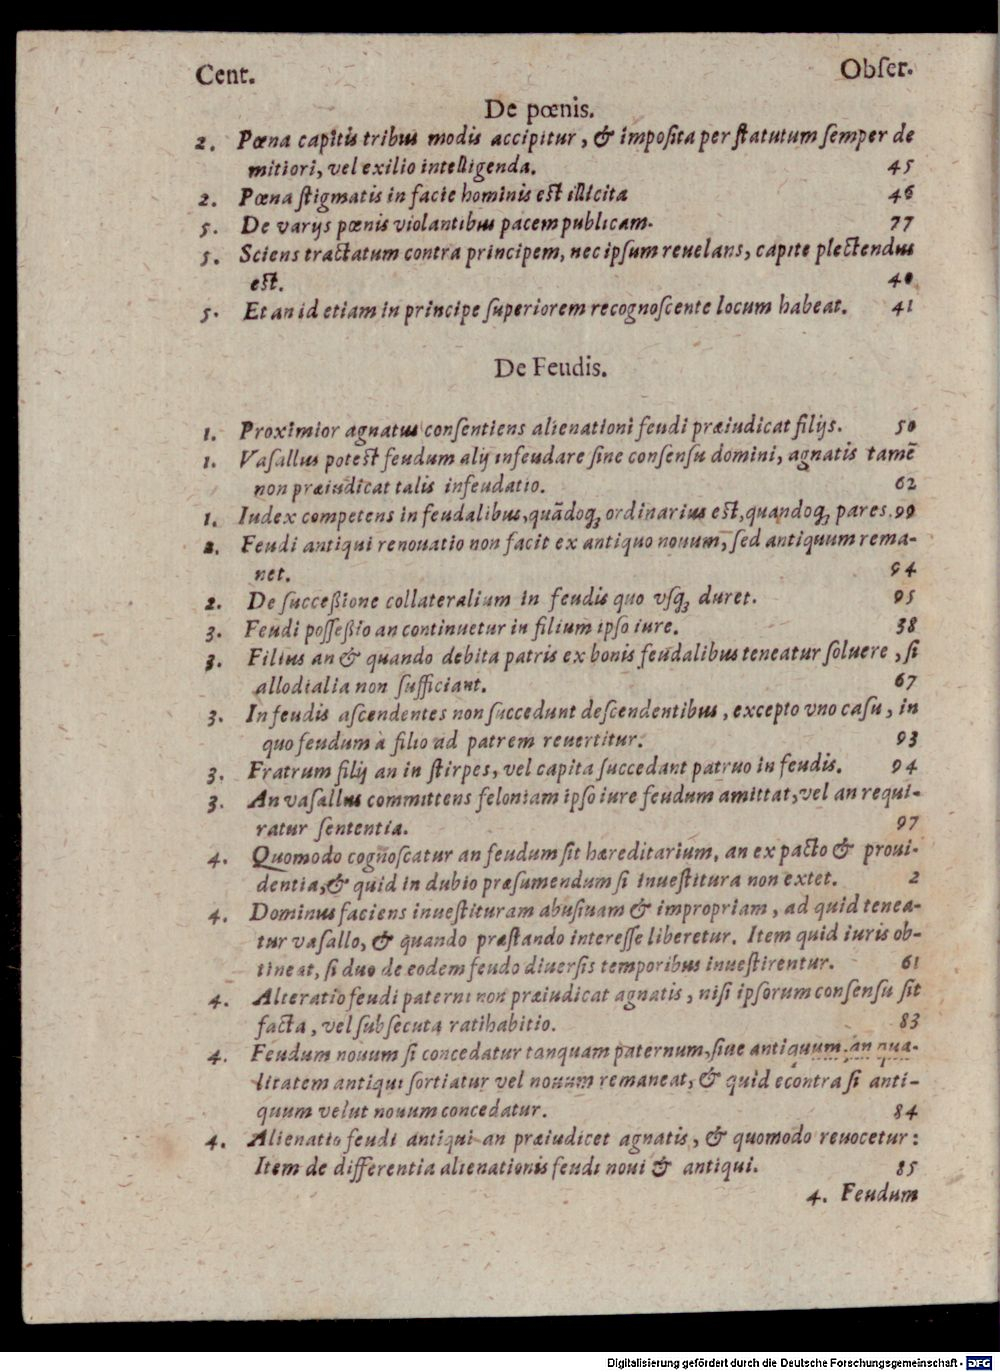 Cent. Obſer.
De pœnis.
2. Pœna capitis tribus modis accipitur, & impoſita per ſtatutum ſemper de
mitiori, vel exilio intelligenda. 45
2. Pœna ſtigmatis in facie hominis est illicita 46
5. De varijs pœnis violantibus pacem publicam. 77
5. Sciens tractatum contra principem, nec ipſum reuelans, capite plectendus
est. 40
5. Et an id etiam in principe ſuperiorem recognoſcente locum habeat. 41
De Feudis.
1. Proximior agnatus conſentiens alienationi feudi præiudicat filijs. 50
1. Vaſallus potest feudum alij infeudare ſine conſenſu domini, agnatis tamẽ
non præiudicat talis infeudatio. 62
1. Iudex competens in feudalibus, quãdoq; ordinarius est, quandoq; pares. 99
2. Feudi antiqui renouatio non facit ex antiquo nouum, ſed antiquum rema-
net. 94
2. De ſucceßione collateralium in feudis quo vſq; duret. 95
3. Feudi poſſeßio an continuetur in filium ipſo iure. 38
3. Filius an & quando debita patris ex bonis feudalibus teneatur ſoluere, ſi
allodialia non ſufficiant. 67
3. In feudis aſcendentes non ſuccedunt deſcendentibus, excepto vno caſu, in
quo feudum à filio ad patrem reuertitur. 93
3. Fratrum filij an in ſtirpes, vel capita ſuccedant patruo in feudis. 94
3. An vaſallus committens feloniam ipſo iure feudum amittat, vel an requi-
ratur ſententia. 97
4. Quomodo cognoſcatur an feudum ſit hæreditarium, an ex pacto & proui-
dentia, & quid in dubio præſumendum ſi inueſtitura non extet. 2
4. Dominus faciens inueſtituram abuſiuam & impropriam, ad quid tenea-
tur vaſallo, & quando præſtando intereſſe liberetur. Item quid iuris ob-
tineat, ſi duo de eodem feudo diuerſis temporibus inueſtirentur. 61
4. Alteratio feudi paterni non præiudicat agnatis, niſi ipſorum conſenſu ſit
facta, vel ſubſecuta ratihabitio. 83
4. Feudum nouum ſi concedatur tanquam paternum, ſiue antiquum, an qua-
litatem antiqui ſortiatur vel nouum remaneat, & quid econtra ſi anti-
quum velut nouum concedatur. 84
4. Alienatio feudi antiqui an præiudicet agnatis, & quomodo reuocetur:
Item de differentia alienationis feudi noui & antiqui. 85
4. Feudum
Digitalisierung gefördert durch die Deutsche Forschungsgemeinschaft - DFG